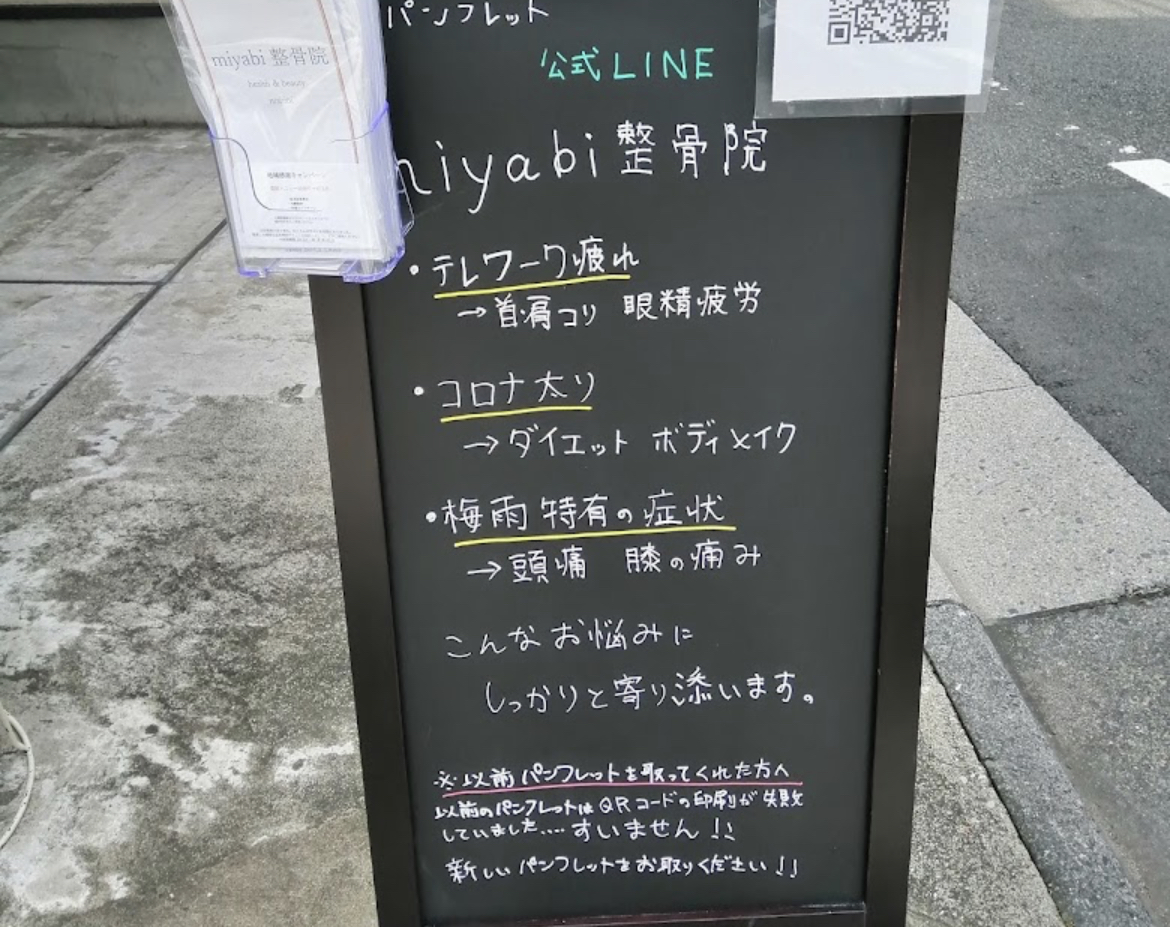 パンフレット
公式LINE
miyabi 整骨院
health & beauty
miyabi 整骨院
・テレワーク疲れ
→首・肩コリ 眼精疲労
・コロナ太り
→ダイエット ボディメイク
・梅雨特有の症状
→頭痛 膝の痛み
こんなお悩みに
しっかりと寄り添います。
※以前パンフレットを取ってくれた方へ
以前のパンフレットはQRコードの印刷が失敗
していました....すいません!!
新しいパンフレットをお取りください!!